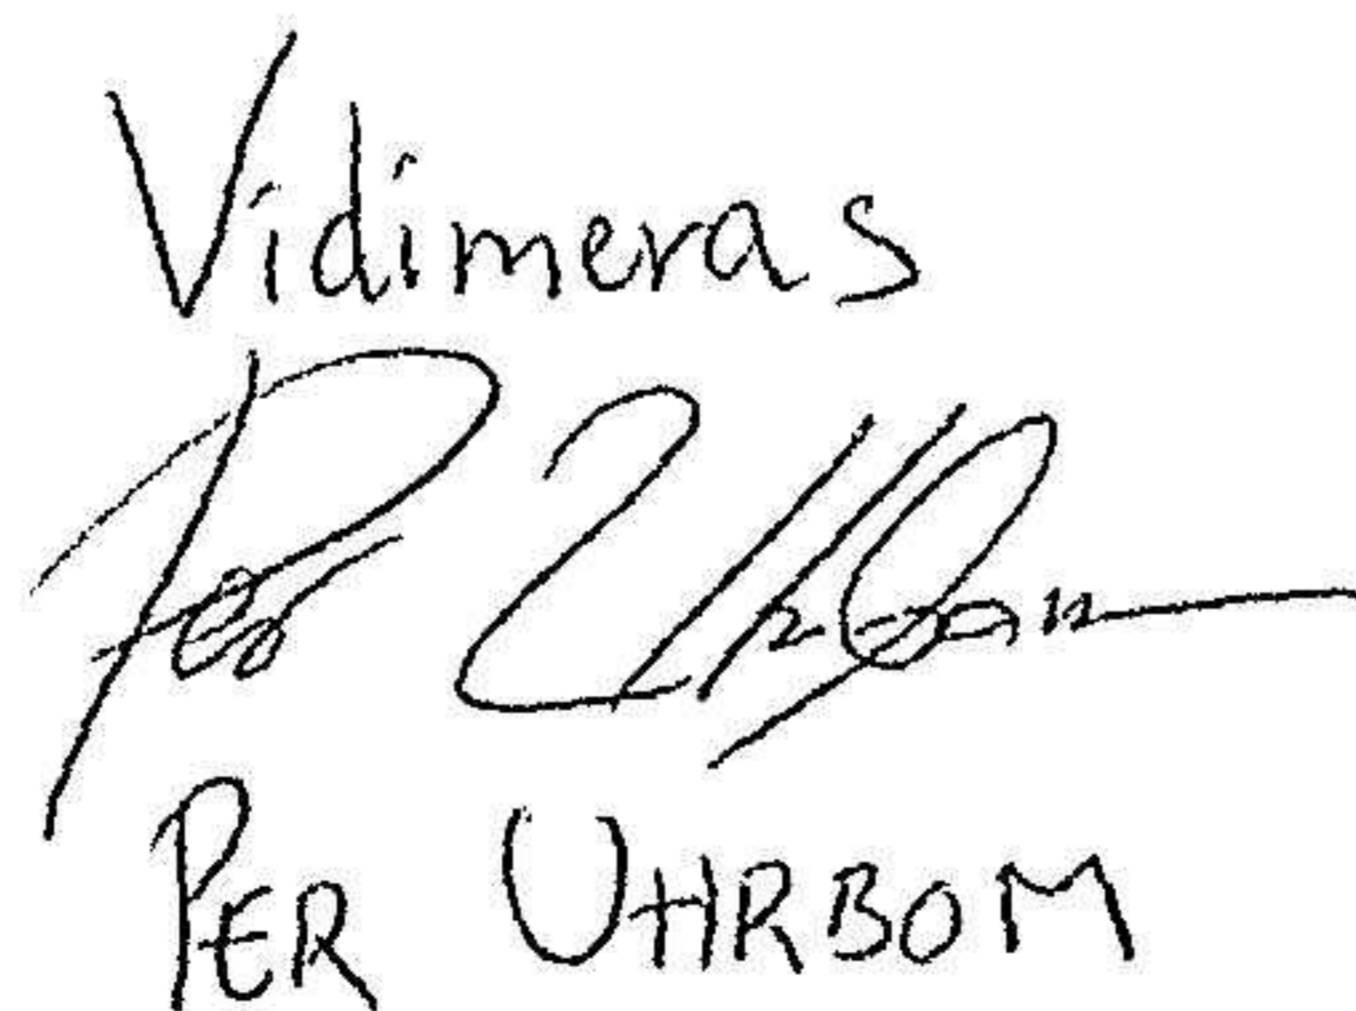 Vidimeras
Per Uhrbom
PER UHRBOM